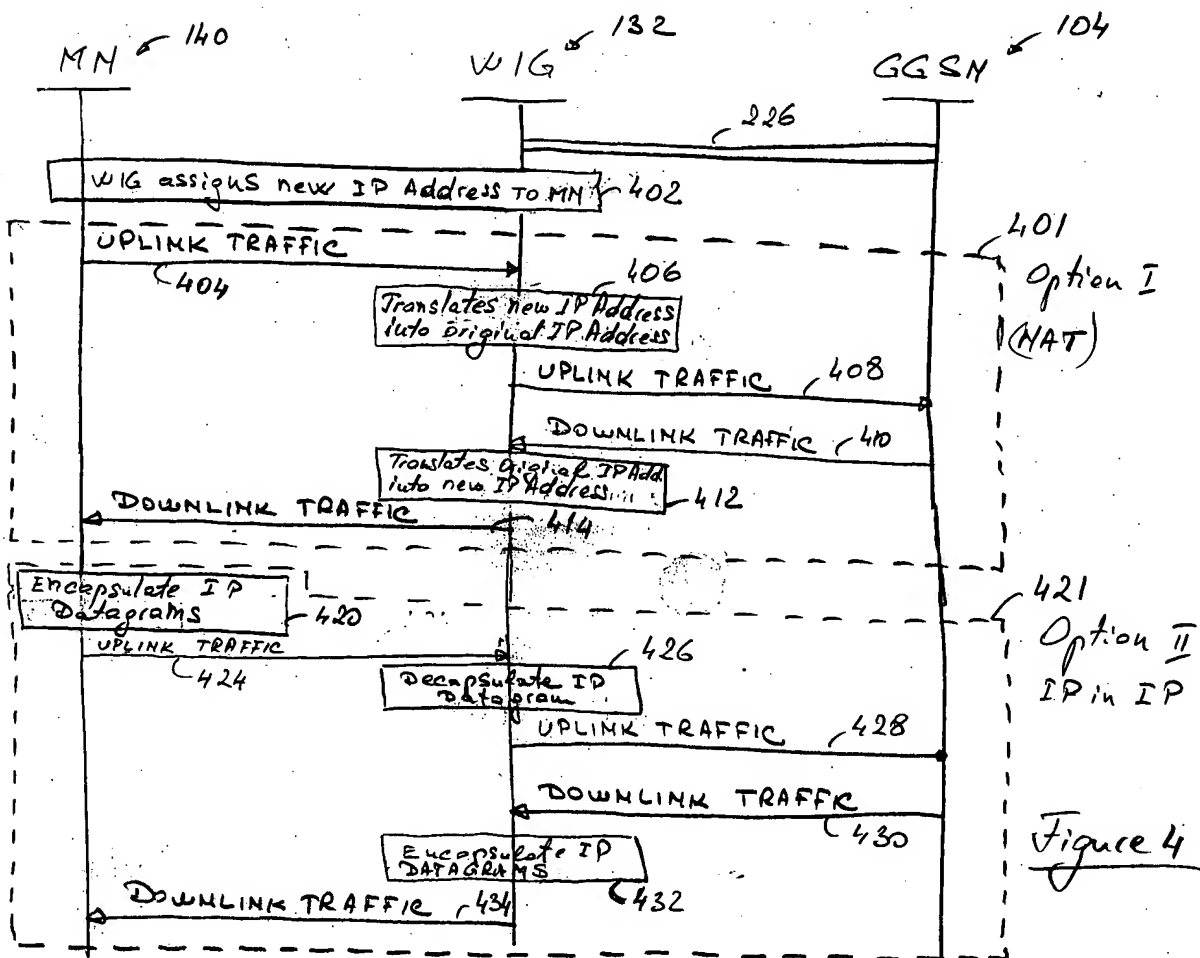 MN 140
WIG 132
GGSN 104
226
WIG assigns new IP Address To MN 402
401
Option I
(NAT)
UPLINK TRAFFIC
404
406
Translates new IP Address
into original IP Address
UPLINK TRAFFIC 408
DOWNLINK TRAFFIC 410
Translates Original IP Add.
into new IP Address....
412
DOWNLINK TRAFFIC
414
421
Option II
IP in IP
Encapsulate IP
Datagrams
420
UPLINK TRAFFIC
424
426
Decapsulate IP
Datagram
UPLINK TRAFFIC 428
DOWNLINK TRAFFIC
430
Encapsulate IP
DATAGRAMS
432
DOWNLINK TRAFFIC 434
Figure 4